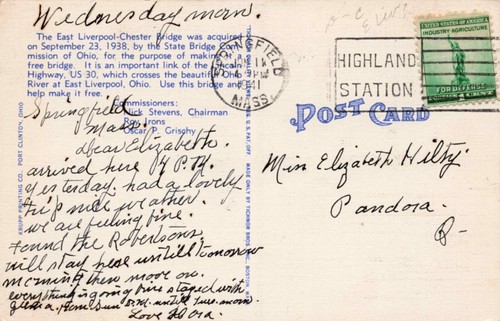 Wednesday morn.
The East Liverpool-Chester Bridge was acquired
on September 23, 1938, by the State Bridge Com-
mission of Ohio, for the purpose of making
free bridge. It is an important link of the
Highway, US 30, which crosses the beautiful
River at East Liverpool. Use this bridge and
help make it free.
Commissioners:
Dick Stevens, Chairman
Roy Irons
Oscar P. Grischy
Springfield
Mass.
Dear Elizabeth.
arrived here 4 P.M.
yesterday. had a lovely
trip nice weather.
we are feeling fine.
Found the Robertsons
will stay here untill tomorrow
morning then move on.
everything is going fine stayed with
from Sun. until Tues. morn.
Love Dora.
KRUPP PRINTING CO. PORT CLINTON, OHIO
MADE ONLY BY TICHNOR BROS., INC.
SPRINGFIELD
4 PM
41
MASS.
HIGHLAND
STATION
UNITED STATES OF AMERICA
INDUSTRY AGRICULTURE
FOR DEFENSE
POST CARD
Miss Elizabeth Hilty
Pandora.
O-